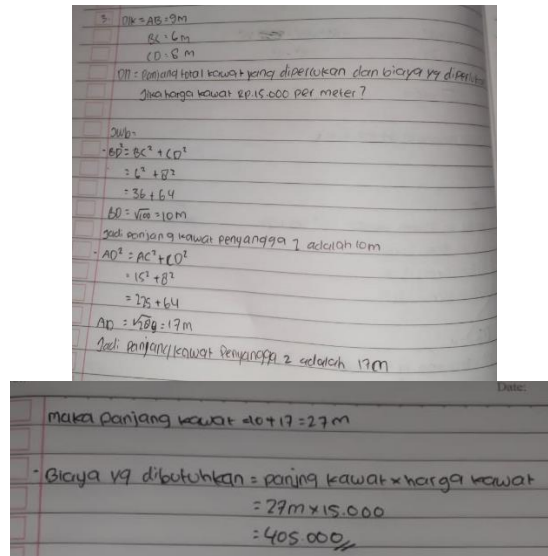 3. Dik = AB = 9m
BC = 6m
CD = 8 m
Dit = panjang total kawat yang diperlukan dan biaya yg
Jika harga kawat Rp.15.000 per meter?
Jwb:
- BD² = BC² + CD²
= 6² + 8²
= 36 + 64
BD = √100 = 10m
Jadi panjang kawat penyangga 1 adalah 10m
- AD² = AC² + CD²
= 15² + 8²
= 225 + 64
AD = √289 = 17m
Jadi panjang kawat penyangga 2 adalah 17m
Date:
maka panjang kawat = 10 + 17 = 27m
- Biaya yg dibutuhkan = panjng kawat × harga kawat
= 27m × 15.000
= 405.000